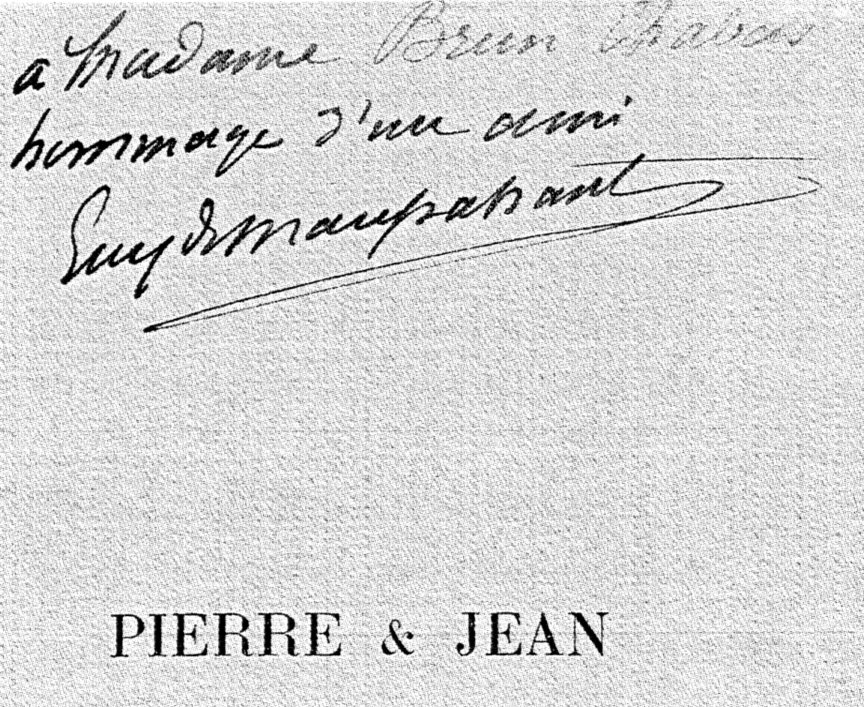 a Madame Brun Chabas
hommage d'un ami
Guy de Maupassant
PIERRE & JEAN